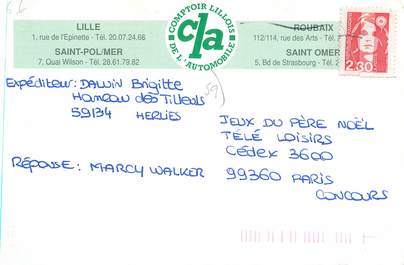 LILLE
1, rue de l'Epinette - Tél. 20.07.24.66
SAINT-POL/MER
7, Quai Wilson - Tél. 28.61.79.82
COMPTOIR LILLOIS
cla
DE L'AUTOMOBILE
ROUBAIX
112/114, rue des Arts - Tél.
SAINT OMER
5, Bd de Strasbourg - Tél. 2
2,30
Expéditeur: DALWIN Brigitte
Hameau des Tilleuls
59134 HERLIES
59
JEUX DU PÈRE NOËL
TÉLÉ LOISIRS
Cédex 3600
99360 PARIS
CONCOURS
RÉPONSE: MARCY WALKER